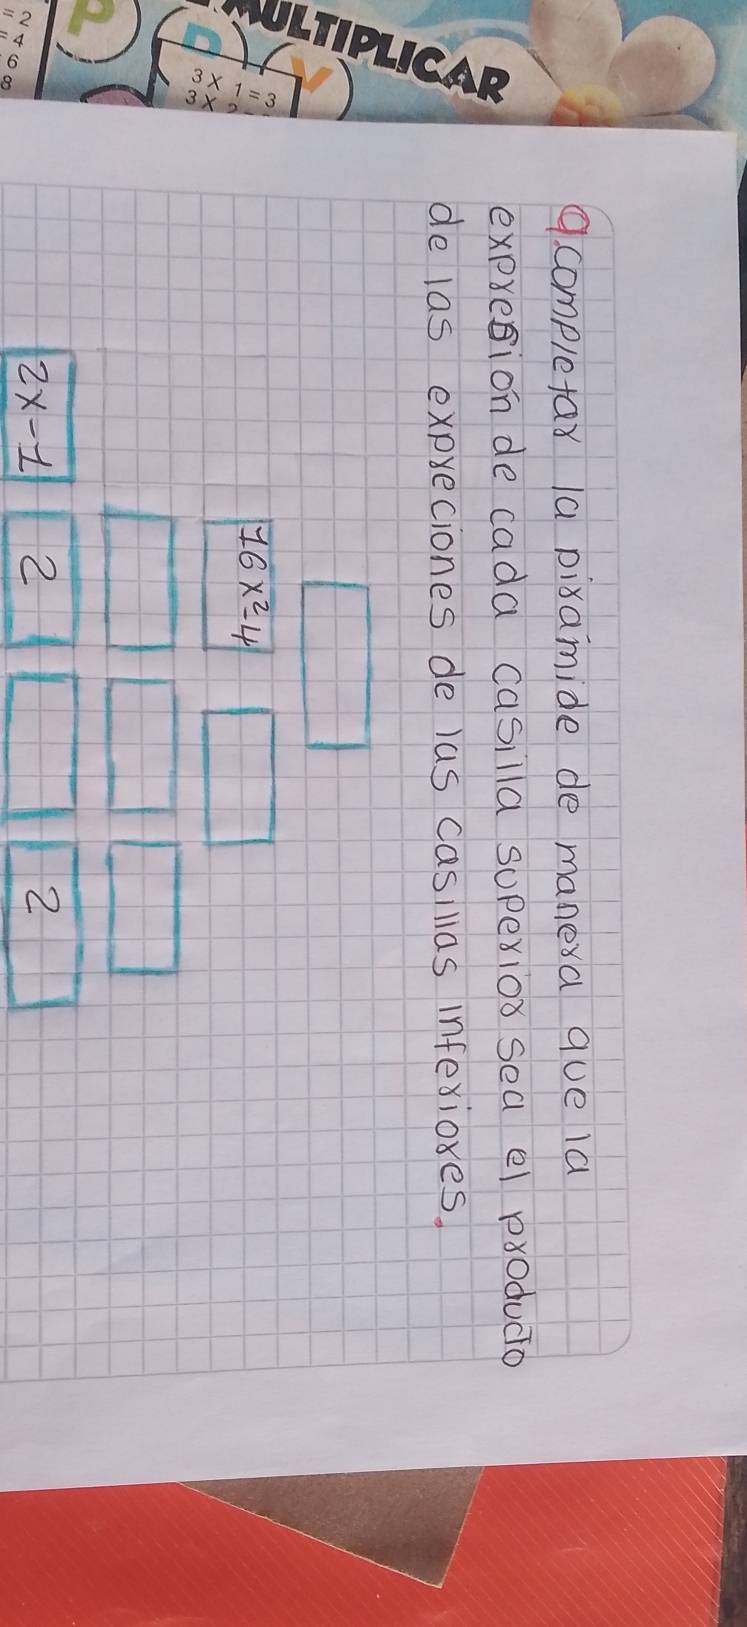 MULTIPLICAR
P
D
V
= 2
= 4
6
8
3 X 1 = 3
3 X 2
9. Completar la pirámide de manera que la
expresión de cada casilla superior sea el producto
de las expreciones de las casillas inferiores.
16x²-4
2x-1 2 2